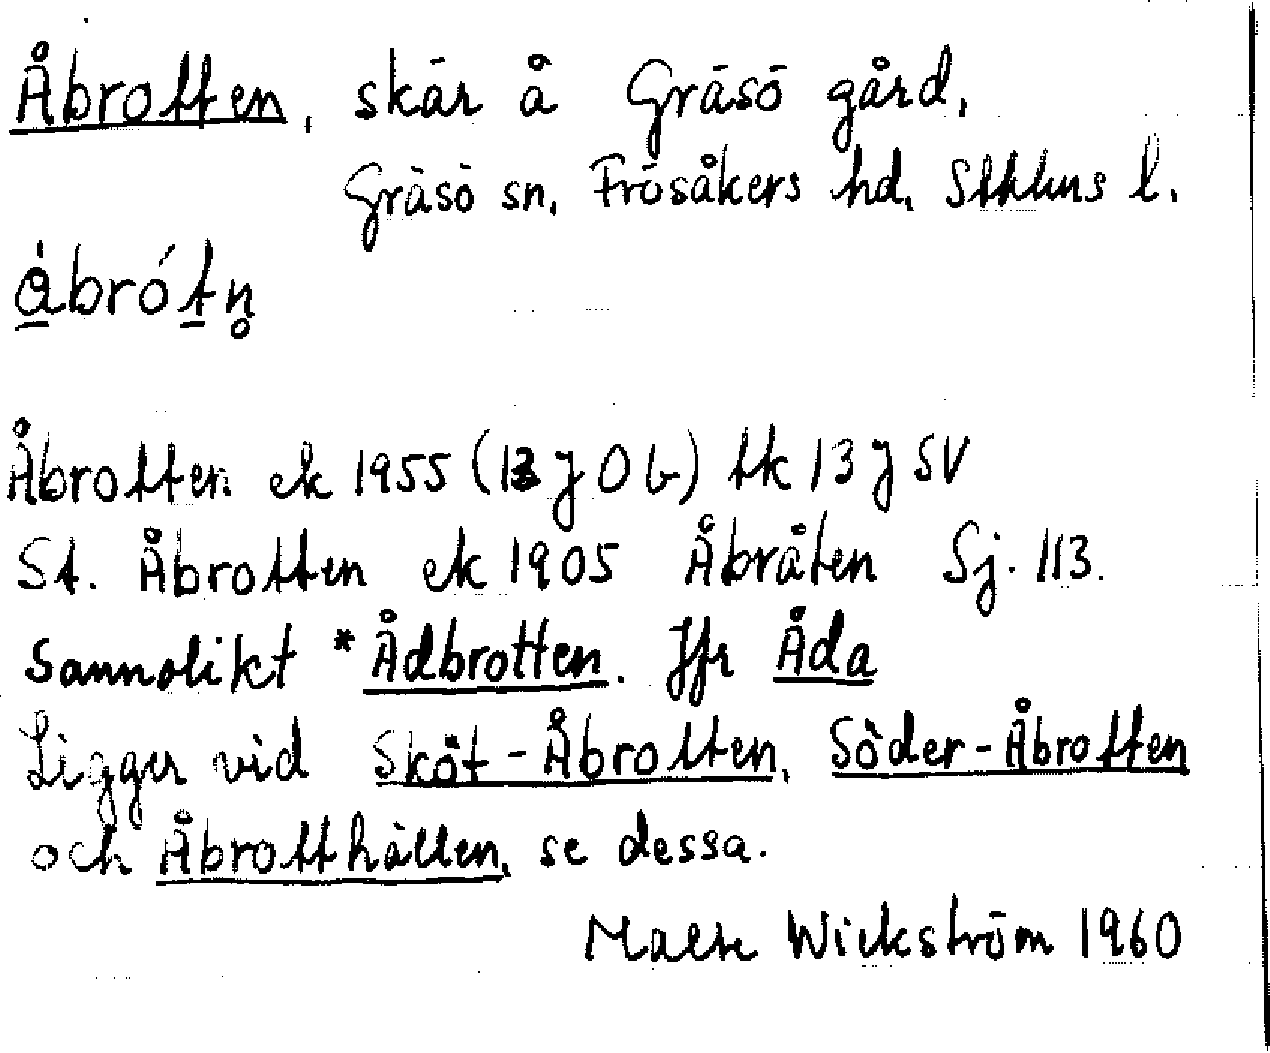 Åbrotten, skär å Gräsö gård,
Gräsö sn, Frösåkers hd, Sthlms l.
å̀brótn̥
Åbrotten ek 1955 (13 J 0 b) tk 13 J SV
St. Åbrotten ek 1905 Åbråten Sj. 113.
Sannolikt *Ådbrotten. Jfr Åda
Ligger vid Sköt-Åbrotten, Söder-Åbrotten
och Åbrotthällen, se dessa.
Wickström 1960